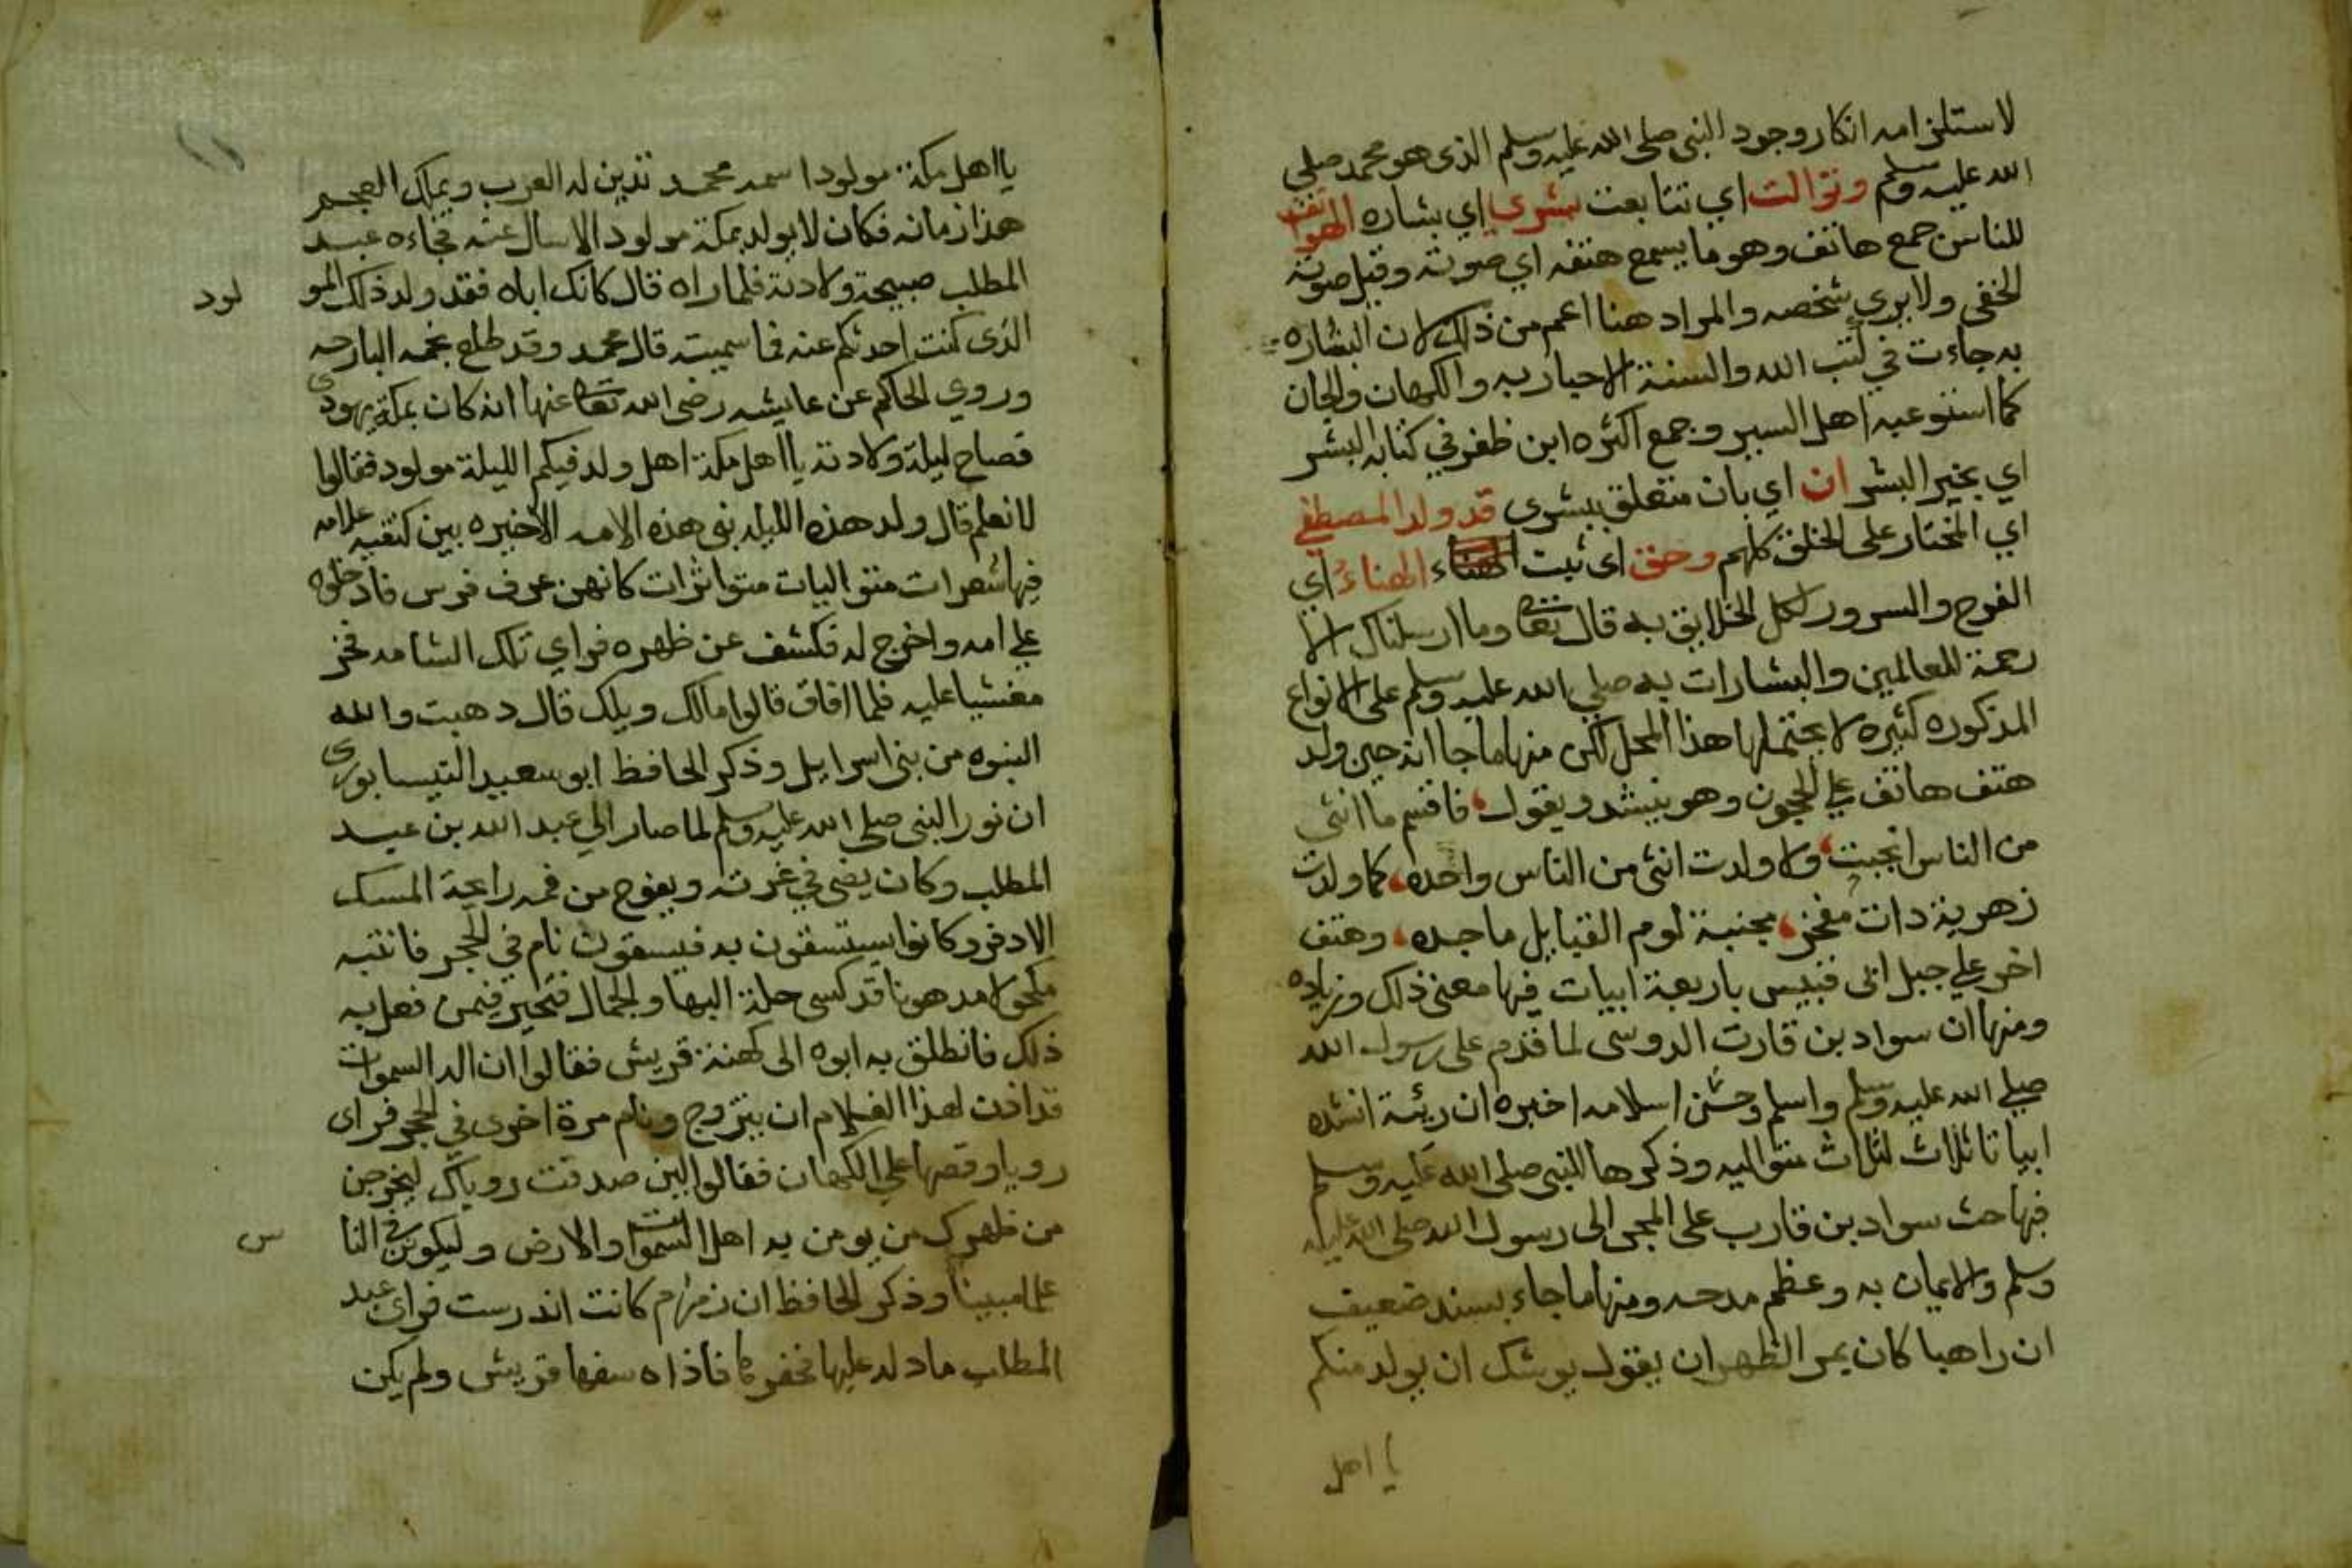 لاستلزامه انكار وجود النبي صلى الله عليه وسلم الذي هو محمد صلي
الله عليه وسلم وتوالت اي تتابعت بشري اي بشاره الهواتف
للناس جمع هاتف وهو ما يسمع هتفه اي صوته وقيل صوته
الخفي ولا يري شخصه والمراد هنا اعم من ذلك لان البشاره
به جاءت في كتب الله والسنة الاحباريه والكهان والجان
كما استوعبه اهل السير وجمع اكثره ابن ظفر في كتابه البشر
اي بخير البشر ان اي بان متعلق ببشرى قد ولد المصطفي
اي المختار على الخلق كلهم وحق اى ثبت الهناء اي
الفرح والسرور لكل الخلايق به قال تعا وما ارسلناك الا
رحمة للعالمين والبشارات به صلي الله عليه وسلم على الانواع
المذكوره كثيره لا يحتملها هذا المحل لكن منها ما جا انه حين ولد
هتف هاتف علي الحجون وهو ينشد ويقول، فاقسم ما انثى
من الناس انجبت، ولا ولدت انثى من الناس واحده، كما ولدت
زهرية ذات مفخر، مجنبة لوم القبايل ماجده، وهتف
اخر علي جبل ابى قبيس باربعة ابيات فيها معنى ذلك وزياده
ومنها ان سواد بن قارت الدوسى لما قدم على رسول الله
صلي الله عليه وسلم واسلم وحسن اسلامه اخبره ان ريئة انشده
ابياتا ثلاث لثلاث متواليه وذكرها للنبى صلى الله عليه وسلم
فيها حث سواد بن قارب على المجى الى رسول الله صلى الله عليه
وسلم والايمان به وعظم مدحه ومنها ما جاء بسند ضعيف
ان راهبا كان بمر الظهران يقول يوشك ان يولد منكم
يا اهل
يا اهل مكة مولود اسمه محمد تدين له العرب ويملك العجم
هذا زمانه فكان لا يولد بمكة مولود الا سال عنه فجاءه عبد
المطلب صبيحة ولادته فلما راه قال كانك اباه فقد ولد ذلك المو
لود
الذى كنت احدثكم عنه فما سميته قال محمد وقد طلع نجمه البارحه
وروي الحاكم عن عايشه رضى الله تعا عنها انه كان بمكة يهودى
فصاح ليلة ولادته يا اهل مكة اهل ولد فيكم الليلة مولود فقالوا
لا نعلم قال ولد هذه الليله نبى هذه الامه الاخيره بين كتفيه علامه
فيها شعرات متواليات متواترات كانهن عرف فرس فادخلوه
علي امه واخرج له فكشف عن ظهره فراي تلك الشامه فخر
مغشيا عليه فلما افاق قالوا مالك ويلك قال ذهبت والله
النبوه من بنى اسرايل وذكر الحافظ ابو سعيد النيسابورى
ان نور النبى صلى الله عليه وسلم لما صار الي عبد الله بن عبد
المطلب وكان يضى في غرته ويفوح من فمه رايحة المسك
الادفر وكانوا يستسقون به فيسقون نام في الحجر فانتبه
مكحولا مدهونا قد كسى حلة البها والجمال فتحير فيمن فعل به
ذلك فانطلق به ابوه الى كهنة قريش فقالوا ان اله السموات
قد اذن لهذا الغلام ان يتزوج ونام مرة اخرى في الحجر فراى
رويا وقصها علي الكهان فقالوا لين صدقت روياك ليخرجن
من ظهرك من يومن به اهل السموات والارض وليكونن في النا
س
علما مبينا وذكر الحافظ ان زمزم كانت اندرست فراى عبد
المطلب ما دله عليها فحفرها فاذاه سفها قريش ولم يكن